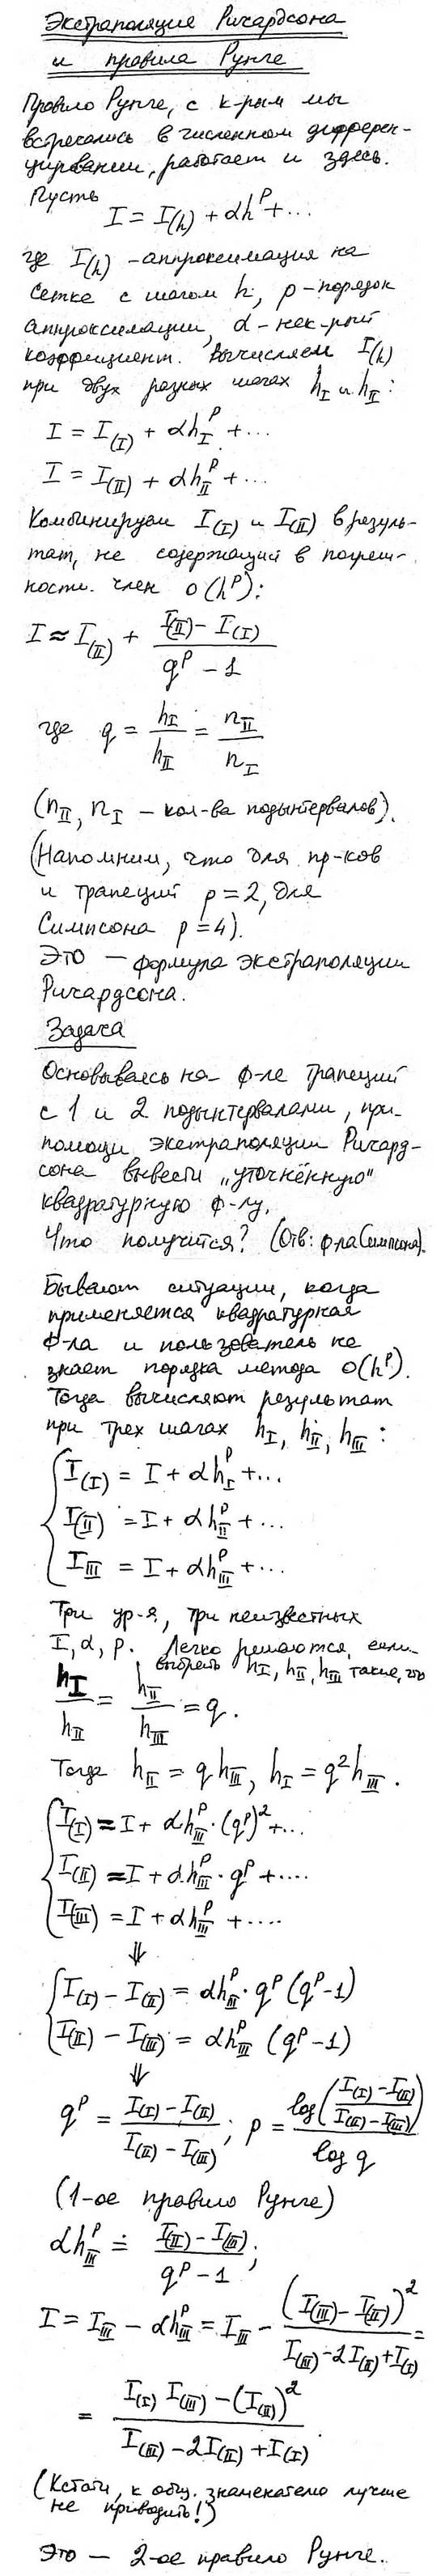 Экстраполяция Ричардсона
и правила Рунге
Правило Рунге, с к-рым мы
встречались в численном дифферен-
цировании, работает и здесь.
Пусть
I = I_(h) + αh^p + ...
где I_(h) – аппроксимация на
сетке с шагом h, p – порядок
аппроксимации, α – нек-рый
коэффициент. Вычисляем I_(h)
при двух разных шагах h_I и h_II :
I = I_(I) + αh_I^p + ...
I = I_(II) + αh_II^p + ...
Комбинируем I_(I) и I_(II) в резуль-
тат, не содержащий в погреш-
ности член o(h^p):
I ≈ I_(II) + (I_(II) - I_(I)) / (q^p - 1)
где q = h_I / h_II = n_II / n_I
(n_II, n_I – кол-ва подынтервалов).
(Напомним, что для пр-ков
и трапеций p=2, для
Симпсона p=4).
Это — формула экстраполяции
Ричардсона.
Задача
Основываясь на ф-ле трапеций
с 1 и 2 подынтервалами, при
помощи экстраполяции Ричард-
сона вывести „уточнённую"
квадратурную ф-лу.
Что получится? (Отв: ф-ла Симпсона).
Бывают ситуации, когда
применяется квадратурная
ф-ла и пользователь не
знает порядка метода o(h^p).
Тогда вычисляют результат
при трех шагах h_I, h_II, h_III :
I_(I) = I + αh_I^p + ...
I_(II) = I + αh_II^p + ...
I_III = I + αh_III^p + ...
Три ур-я, три неизвестных
I, α, p. Легко решаются, если
выбрать h_I, h_II, h_III такие, что
h_I / h_II = h_II / h_III = q.
Тогда h_II = q h_III, h_I = q^2 h_III.
I_(I) = I + αh_III^p · (q^p)^2 + ...
I_(II) = I + αh_III^p · q^p + ....
I_(III) = I + αh_III^p + ....
⇓
I_(I) - I_(II) = αh_III^p · q^p (q^p - 1)
I_(II) - I_(III) = αh_III^p (q^p - 1)
⇓
q^p = (I_(I) - I_(II)) / (I_(II) - I_(III)) ; p = log((I_(I) - I_(II)) / (I_(II) - I_(III))) / log q
(1-ое правило Рунге)
αh_III^p = (I_(II) - I_(III)) / (q^p - 1) ;
I = I_III - αh_III^p = I_III - (I_(III) - I_(II))^2 / (I_(III) - 2I_(II) + I_(I)) =
= (I_(I) I_(III) - (I_(II))^2) / (I_(III) - 2I_(II) + I_(I)).
(Кстати, к общ. знаменателю лучше
не приводить!)
Это — 2-ое правило Рунге.